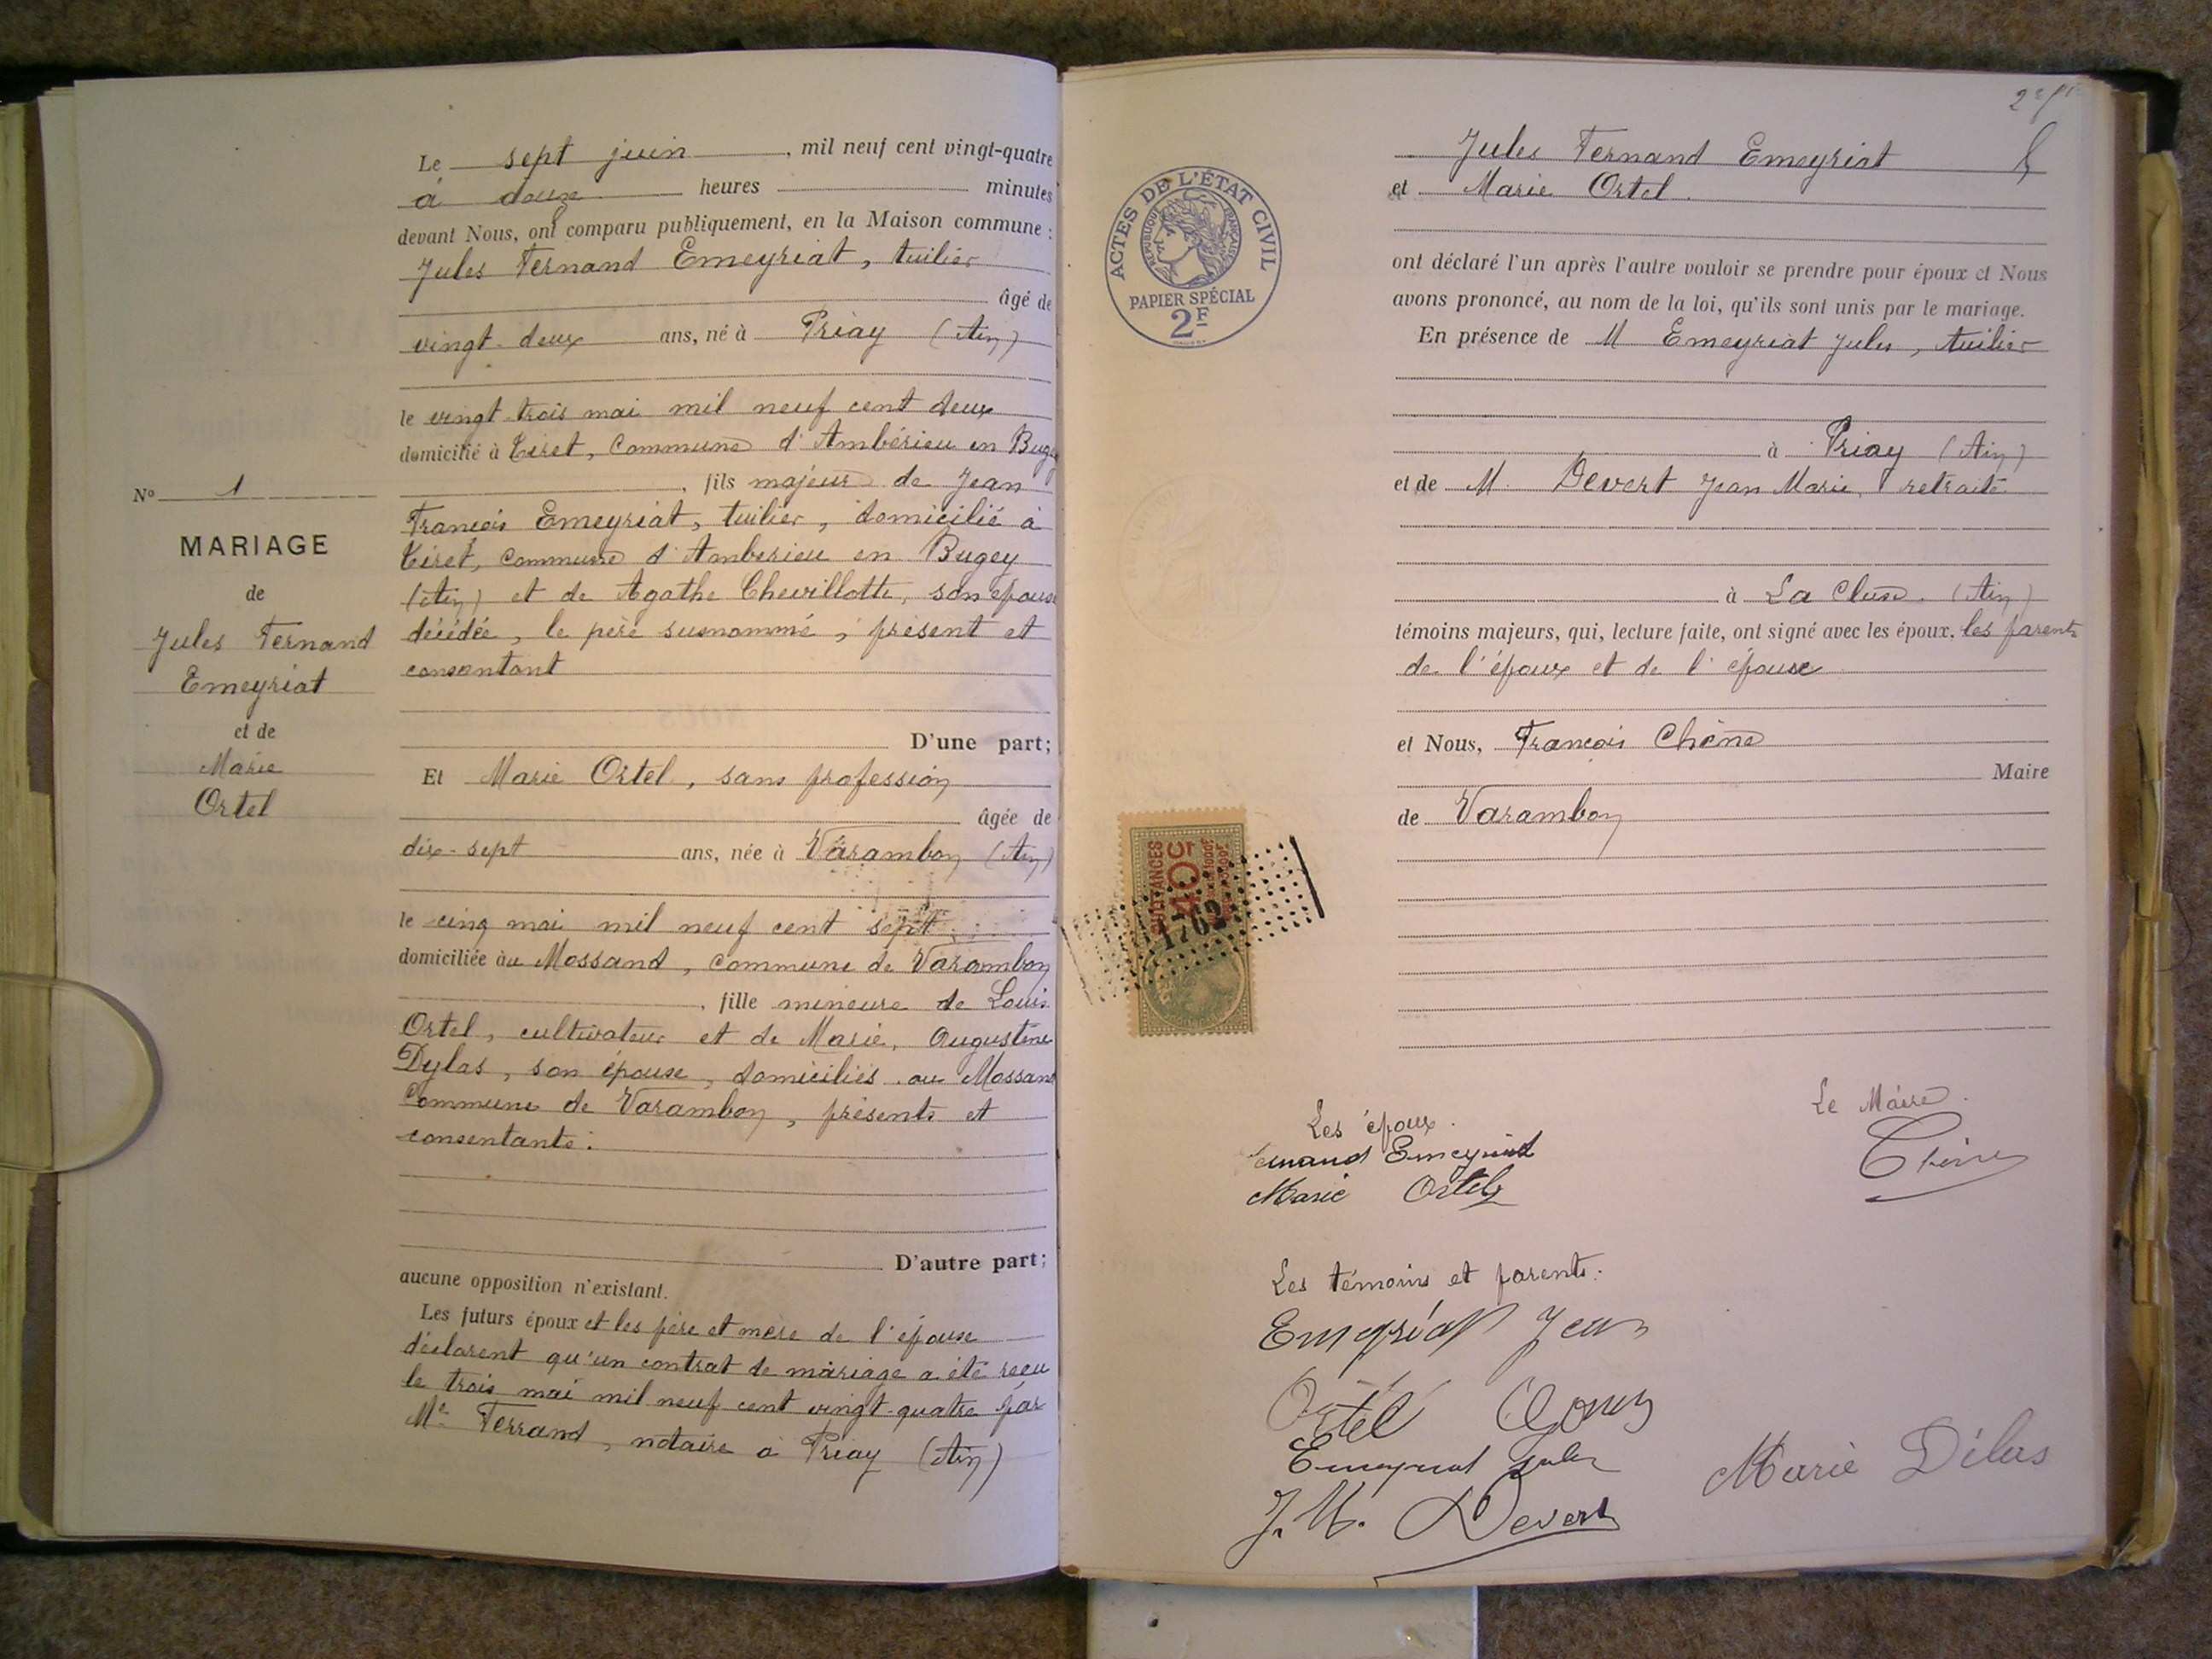 Le sept juin, mil neuf cent vingt-quatre
à douze heures minutes
devant Nous, ont comparu publiquement, en la Maison commune :
Jules Fernand Emeyriat, tuilier
âgé de
vingt-deux ans, né à Priay (Ain)
le vingt-trois mai mil neuf cent deux
domicilié à Tiret, commune d'Ambérieu en Bugey
, fils majeur de Jean
François Emeyriat, tuilier, domicilié à
Tiret, commune d'Amberieu en Bugey
(Ain) et de Agathe Chevillotte, son épouse
décédée, le père susnommé, présent et
consentant
D'une part;
Et Marie Ortel, sans profession
âgée de
dix-sept ans, née à Varambon (Ain)
le cinq mai mil neuf cent sept
domiciliée au Mossand, commune de Varambon
, fille mineure de Louis
Ortel, cultivateur et de Marie, Augustine
Dylas, son épouse, domiciliés au Mossand
commune de Varambon, présents et
consentants.
D'autre part;
aucune opposition n'existant.
Les futurs époux et les père et mère de l'épouse
déclarent qu'un contrat de mariage a été reçu
le trois mai mil neuf cent vingt-quatre par
Me Ferrand, notaire à Priay (Ain)
No 1
MARIAGE
de
Jules Fernand
Emeyriat
et de
Marie
Ortel
Jules Fernand Emeyriat
et Marie Ortel.
ont déclaré l'un après l'autre vouloir se prendre pour époux et Nous
avons prononcé, au nom de la loi, qu'ils sont unis par le mariage.
En présence de M Emeyriat Jules, tuilier
à Priay (Ain)
et de M. Devert Jean Marie, retraité
à La Cluse. (Ain)
témoins majeurs, qui, lecture faite, ont signé avec les époux, les parents
de l'époux et de l'épouse
et Nous, François Chêne
Maire
de Varambon
ACTES DE L'ÉTAT CIVIL
RÉPUBLIQUE FRANÇAISE
PAPIER SPÉCIAL
2F
QUITTANCES
40c
1762
Les époux.
Fernand Emeyriat
Marie Ortel
Le Maire.
Chêne
Les témoins et parents.
Emeyriat Jean
Ortel Louis
Emeyriat Jules
J. M. Devert
Marie Dilas